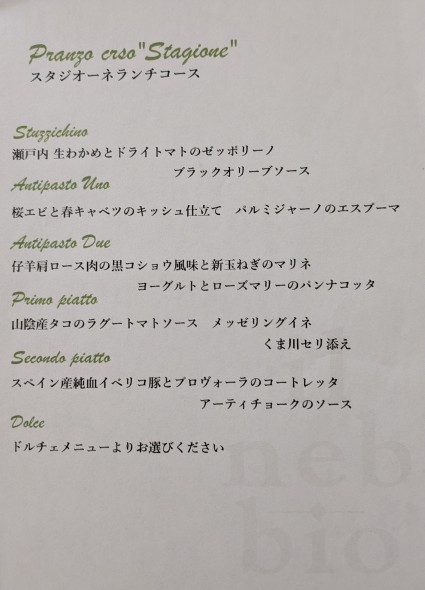 Pranzo crso"Stagione"
スタジオーネランチコース
Stuzzichino
瀬戸内 生わかめとドライトマトのゼッポリーノ
ブラックオリーブソース
Antipasto Uno
桜エビと春キャベツのキッシュ仕立て　パルミジャーノのエスプーマ
Antipasto Due
仔羊肩ロース肉の黒コショウ風味と新玉ねぎのマリネ
ヨーグルトとローズマリーのパンナコッタ
Primo piatto
山陰産タコのラグートマトソース　メッゼリングイネ
くま川セリ添え
Secondo piatto
スペイン産純血イベリコ豚とプロヴォーラのコートレッタ
アーティチョークのソース
Dolce
ドルチェメニューよりお選びください
neb
bio